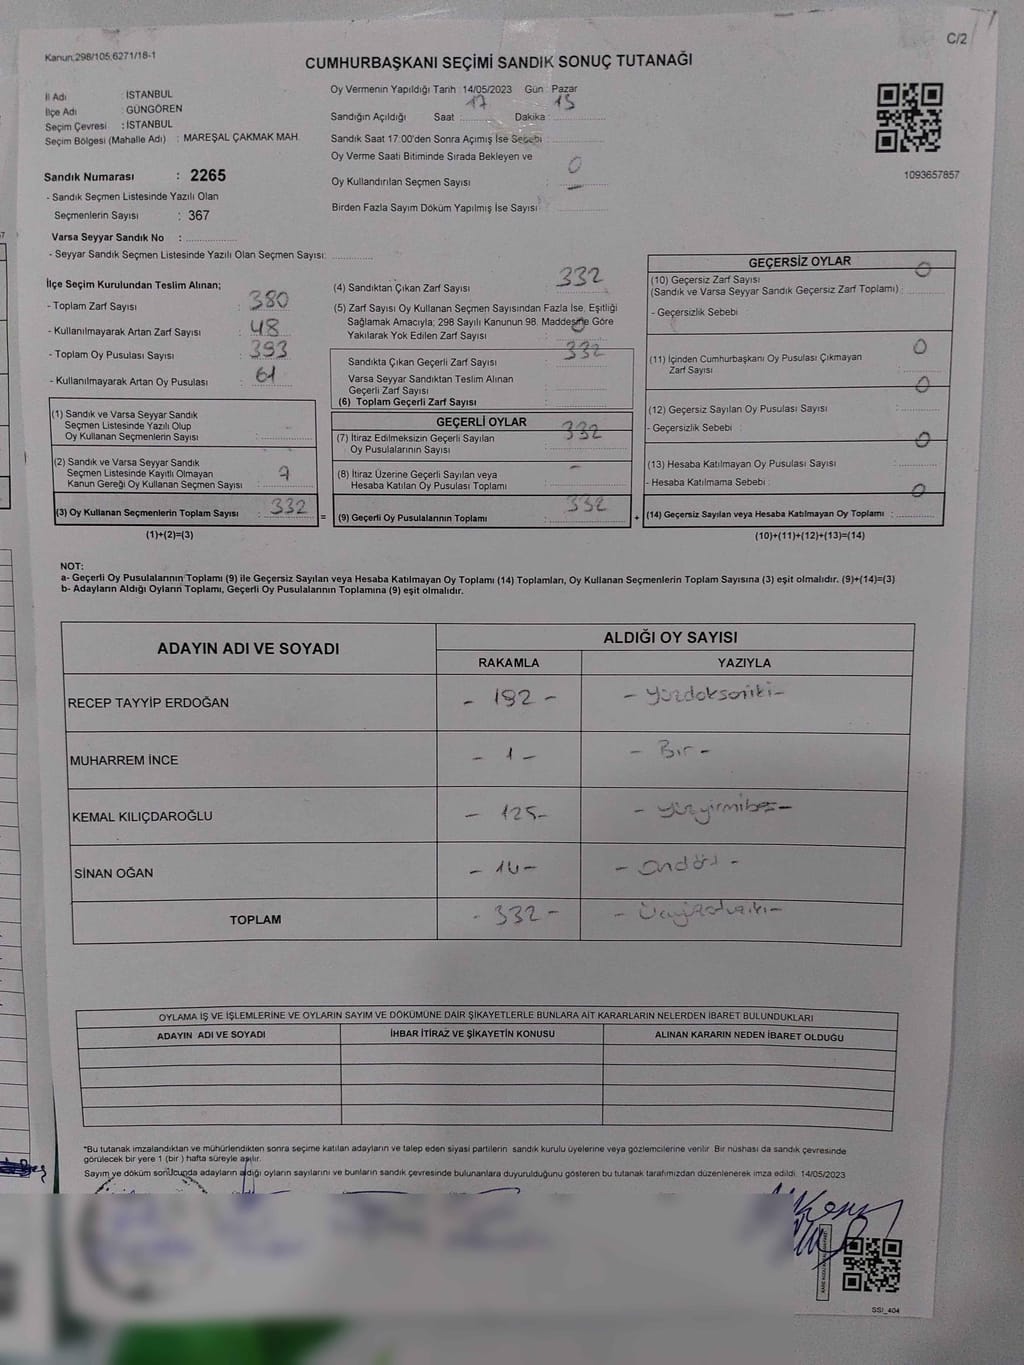 C/2
Kanun;298/105,6271/18-1
CUMHURBAŞKANI SEÇİMİ SANDIK SONUÇ TUTANAĞI
İl Adı : İSTANBUL
İlçe Adı : GÜNGÖREN
Seçim Çevresi : İSTANBUL
Seçim Bölgesi (Mahalle Adı) : MAREŞAL ÇAKMAK MAH.
Sandık Numarası : 2265
- Sandık Seçmen Listesinde Yazılı Olan
Seçmenlerin Sayısı : 367
Varsa Seyyar Sandık No :
- Seyyar Sandık Seçmen Listesinde Yazılı Olan Seçmen Sayısı:
Oy Vermenin Yapıldığı Tarih : 14/05/2023 Gün : Pazar
Sandığın Açıldığı Saat : 17 Dakika : 15
Sandık Saat 17:00'den Sonra Açımış İse Sebebi :
Oy Verme Saati Bitiminde Sırada Bekleyen ve
Oy Kullandırılan Seçmen Sayısı : 0
Birden Fazla Sayım Döküm Yapılmış İse Sayısı :
1093657857
İlçe Seçim Kurulundan Teslim Alınan;
- Toplam Zarf Sayısı : 380
- Kullanılmayarak Artan Zarf Sayısı : 48
- Toplam Oy Pusulası Sayısı : 393
- Kullanılmayarak Artan Oy Pusulası : 61
(1) Sandık ve Varsa Seyyar Sandık
Seçmen Listesinde Yazılı Olup
Oy Kullanan Seçmenlerin Sayısı :
(2) Sandık ve Varsa Seyyar Sandık
Seçmen Listesinde Kayıtlı Olmayan
Kanun Gereği Oy Kullanan Seçmen Sayısı :
(3) Oy Kullanan Seçmenlerin Toplam Sayısı : 332
(1)+(2)=(3)
(4) Sandıktan Çıkan Zarf Sayısı : 332
(5) Zarf Sayısı Oy Kullanan Seçmen Sayısından Fazla İse, Eşitliği
Sağlamak Amacıyla; 298 Sayılı Kanunun 98. Maddesine Göre
Yakılarak Yok Edilen Zarf Sayısı : 0
Sandıkta Çıkan Geçerli Zarf Sayısı : 332
Varsa Seyyar Sandıktan Teslim Alınan
Geçerli Zarf Sayısı :
(6) Toplam Geçerli Zarf Sayısı :
GEÇERLİ OYLAR
(7) İtiraz Edilmeksizin Geçerli Sayılan
Oy Pusulalarının Sayısı : 332
(8) İtiraz Üzerine Geçerli Sayılan veya
Hesaba Katılan Oy Pusulası Toplamı : -
= (9) Geçerli Oy Pusulalarının Toplamı : 332
GEÇERSİZ OYLAR
(10) Geçersiz Zarf Sayısı
(Sandık ve Varsa Seyyar Sandık Geçersiz Zarf Toplamı) : 0
- Geçersizlik Sebebi :
(11) İçinden Cumhurbaşkanı Oy Pusulası Çıkmayan
Zarf Sayısı : 0
(12) Geçersiz Sayılan Oy Pusulası Sayısı : 0
- Geçersizlik Sebebi :
(13) Hesaba Katılmayan Oy Pusulası Sayısı : 0
- Hesaba Katılmama Sebebi :
+ (14) Geçersiz Sayılan veya Hesaba Katılmayan Oy Toplamı : 0
(10)+(11)+(12)+(13)=(14)
NOT:
a- Geçerli Oy Pusulalarının Toplamı (9) ile Geçersiz Sayılan veya Hesaba Katılmayan Oy Toplamı (14) Toplamları, Oy Kullanan Seçmenlerin Toplam Sayısına (3) eşit olmalıdır. (9)+(14)=(3)
b- Adayların Aldığı Oyların Toplamı, Geçerli Oy Pusulalarının Toplamına (9) eşit olmalıdır.
ADAYIN ADI VE SOYADI ALDIĞI OY SAYISI
RAKAMLA YAZIYLA
RECEP TAYYİP ERDOĞAN - 192 - - Yüzdoksaniki -
MUHARREM İNCE - 1 - - Bir -
KEMAL KILIÇDAROĞLU - 125 - - yüzyirmibeş -
SİNAN OĞAN - 14 - - Ondört -
TOPLAM - 332 - - Üçyüzotuziki -
OYLAMA İŞ VE İŞLEMLERİNE VE OYLARIN SAYIM VE DÖKÜMÜNE DAİR ŞİKAYETLERLE BUNLARA AİT KARARLARIN NELERDEN İBARET BULUNDUKLARI
ADAYIN ADI VE SOYADI İHBAR İTİRAZ VE ŞİKAYETİN KONUSU ALINAN KARARIN NEDEN İBARET OLDUĞU
*Bu tutanak imzalandıktan ve mühürlendikten sonra seçime katılan adayların ve talep eden siyasi partilerin sandık kurulu üyelerine veya gözlemcilerine verilir. Bir nüshası da sandık çevresinde
görülecek bir yere 1 (bir ) hafta süreyle asılır.
Sayım ve döküm sonucunda adayların aldığı oyların sayılarını ve bunların sandık çevresinde bulunanlara duyurulduğunu gösteren bu tutanak tarafımızdan düzenlenerek imza edildi. 14/05/2023
SSI_404